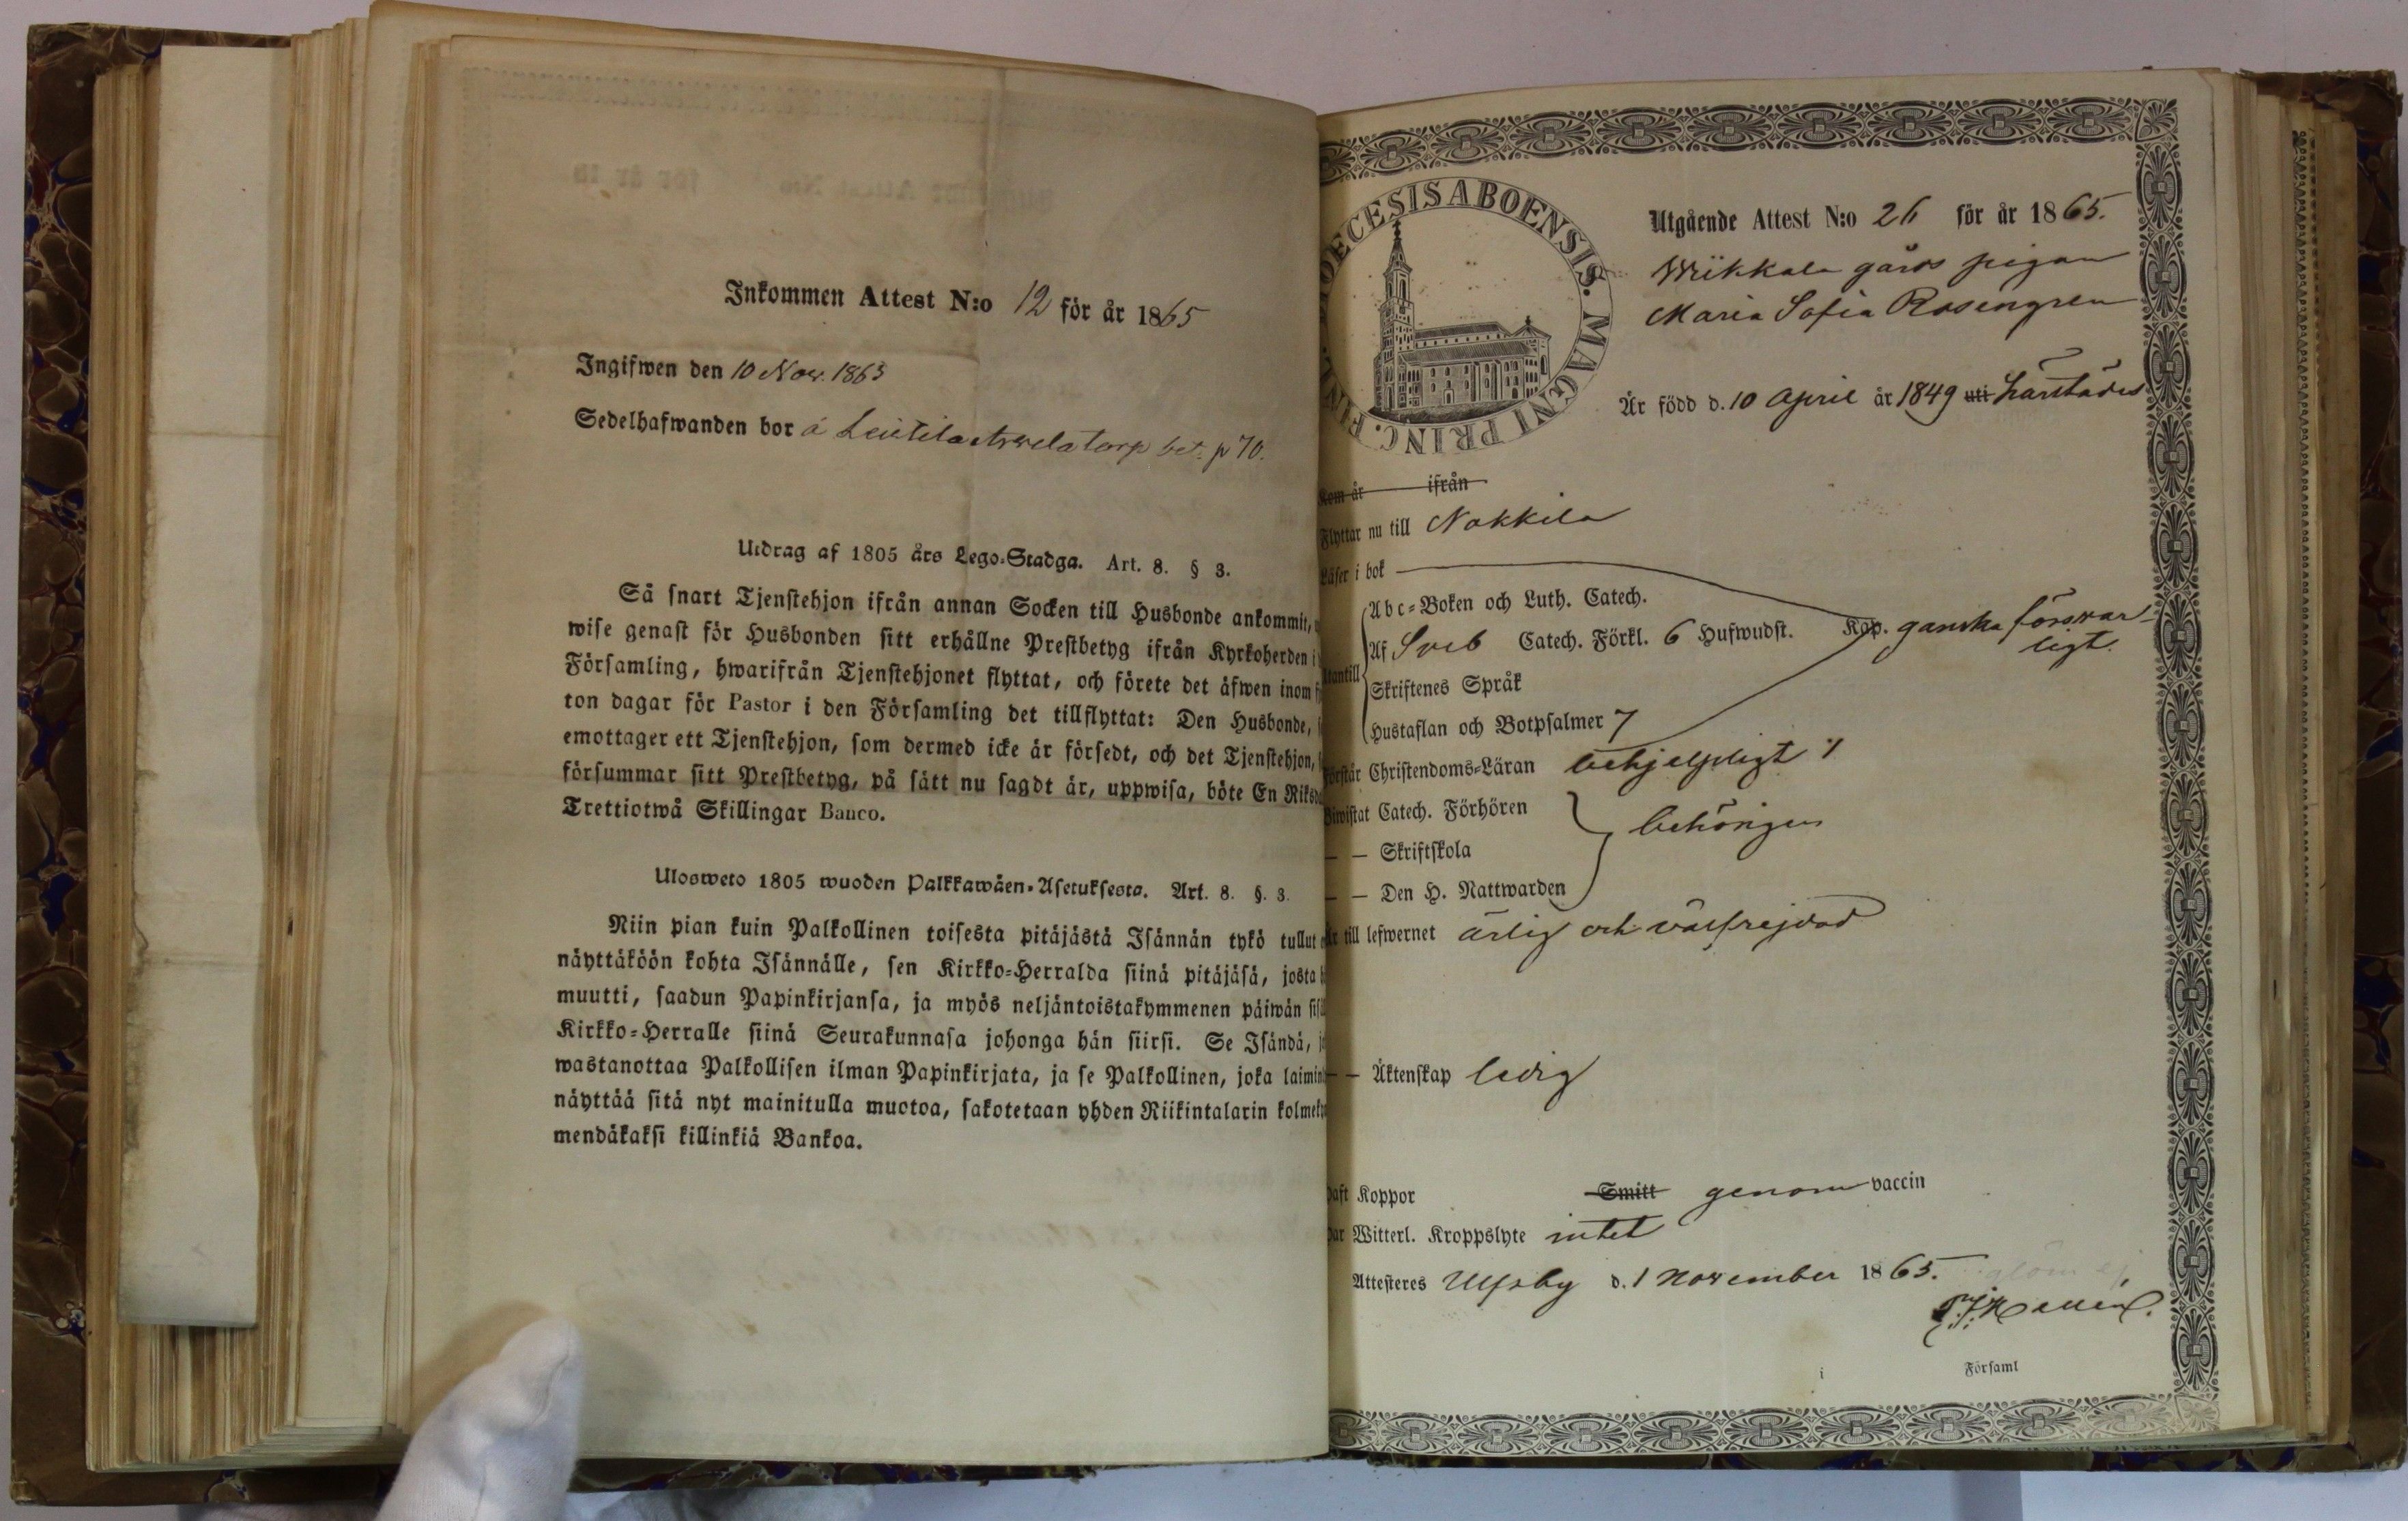 Inkommen Attest N:o 12 för år 1865
Ingifwen den 10 Nov. 1865
Sedelhafwanden bor á Leistila torp bet. p 70.
Utdrag af 1805 års Lego-Stadga. Art. 8. § 3.
Så snart Tjenstehjon ifrån annan Socken till Husbonde ankommit,
wise genast för Husbonden sitt erhållne Prestbetyg ifrån Kyrkoherden i
Församling, hwarifrån Tjenstehjonet flyttat, och förete det äfwen inom
ton dagar för Pastor i den Församling det tillflyttat: Den Husbonde,
emottager ett Tjenstehjon, som dermed icke är försedt, och det Tjenstehjon,
försummar sitt Prestbetyg, på sätt nu sagdt är, uppwisa, böte En Riksd
Trettiotwå Skillingar Banco.
Ulosweto 1805 wuoden Palkkawäen-Asetuksesta. Art. 8. §. 3.
Niin pian kuin Palkollinen toisesta pitäjästä Isännän tykö tullut
näyttäköön kohta Isännälle, sen Kirkko-Herralda siinä pitäjäsä, josta
muutti, saadun Papinkirjansa, ja myös neljäntoistakymmenen päiwän sisä
Kirkko-Herralle siinä Seurakunnasa johonga hän siirsi. Se Isändä,
wastanottaa Palkollisen ilman Papinkirjata, ja se Palkollinen, joka laimin
näyttää sitä nyt mainitulla muotoa, sakotetaan yhden Riikintalarin kolmeky
mendäkaksi killinkiä Bankoa.
DIOECESIS ABOENSIS. MAGNI PRINC. FINL.
Utgående Attest N:o 26 för år 1865.
Wiikkala gårds pigan
Maria Sofia Rosengren
Är född d. 10 April år 1849 uti härstädes
Kom år ifrån
Flyttar nu till Nakkila
Läser i bok
Abc-Boken och Luth. Catech.
Utantill Af Sveb Catech. Förkl. 6 Hufwudst. Kap. ganska försvar-
ligt.
Skriftenes Språk
Hustaflan och Botpsalmer 7
Förstår Christendoms-Läran behjelpligt
Biwistat Catech. Förhören
behörigen
— — Skriftskola
— — Den H. Nattwarden
Är till lefwernet ärlig och välfrejdad
— — Äktenskap ledig
Haft Koppor Smitt genom vaccin
Har Witterl. Kroppslyte intet
Attesteres Ulfsby d. 1 November 1865.
i Församl